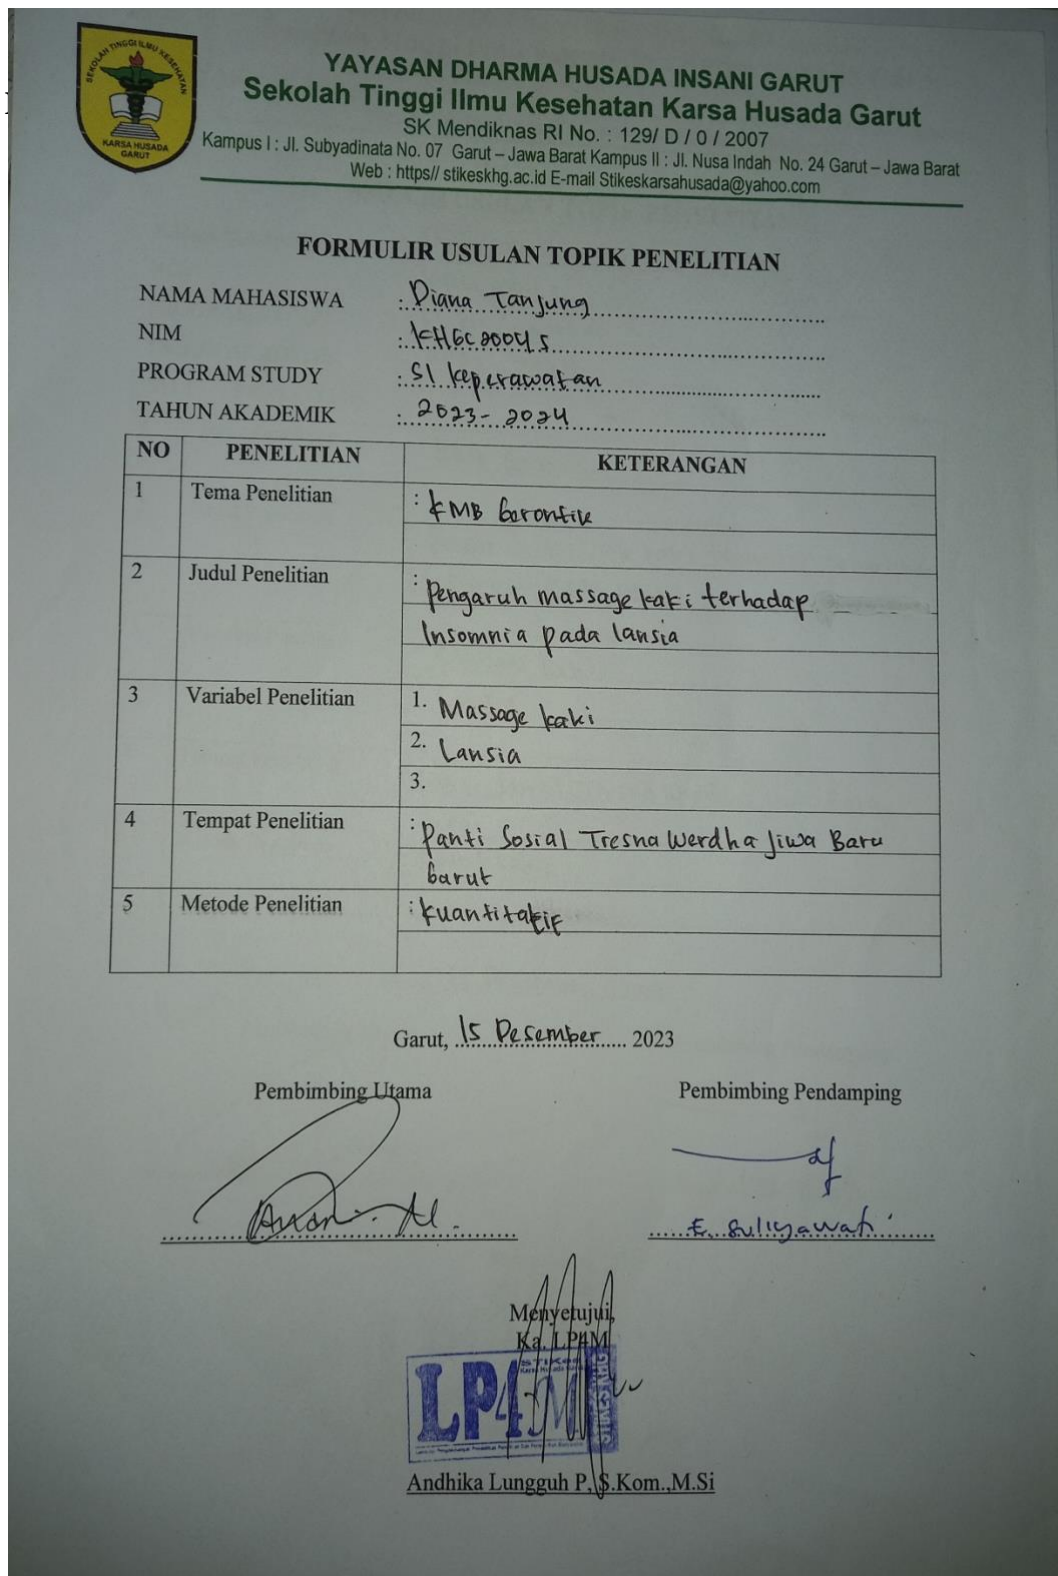 SEKOLAH TINGGI ILMU KESEHATAN
KARSA HUSADA
GARUT
YAYASAN DHARMA HUSADA INSANI GARUT
Sekolah Tinggi Ilmu Kesehatan Karsa Husada Garut
SK Mendiknas RI No. : 129/ D / 0 / 2007
Kampus I : Jl. Subyadinata No. 07 Garut – Jawa Barat Kampus II : Jl. Nusa Indah No. 24 Garut – Jawa Barat
Web : https// stikeskhg.ac.id E-mail Stikeskarsahusada@yahoo.com
FORMULIR USULAN TOPIK PENELITIAN
NAMA MAHASISWA : Diana Tanjung
NIM : KHGC20045
PROGRAM STUDY : S1 keperawatan
TAHUN AKADEMIK : 2023 - 2024
NO PENELITIAN KETERANGAN
1 Tema Penelitian : KMB Gerontik
2 Judul Penelitian : Pengaruh massage kaki terhadap
Insomnia pada lansia
3 Variabel Penelitian 1. Massage kaki
2. Lansia
3.
4 Tempat Penelitian : Panti Sosial Tresna Werdha Jiwa Baru
Garut
5 Metode Penelitian : kuantitatif
Garut, 15 Desember 2023
Pembimbing Utama Pembimbing Pendamping
E. Suliyawati
Menyetujui,
Ka. LP4M
STIKes
LP4M
Andhika Lungguh P, S.Kom.,M.Si